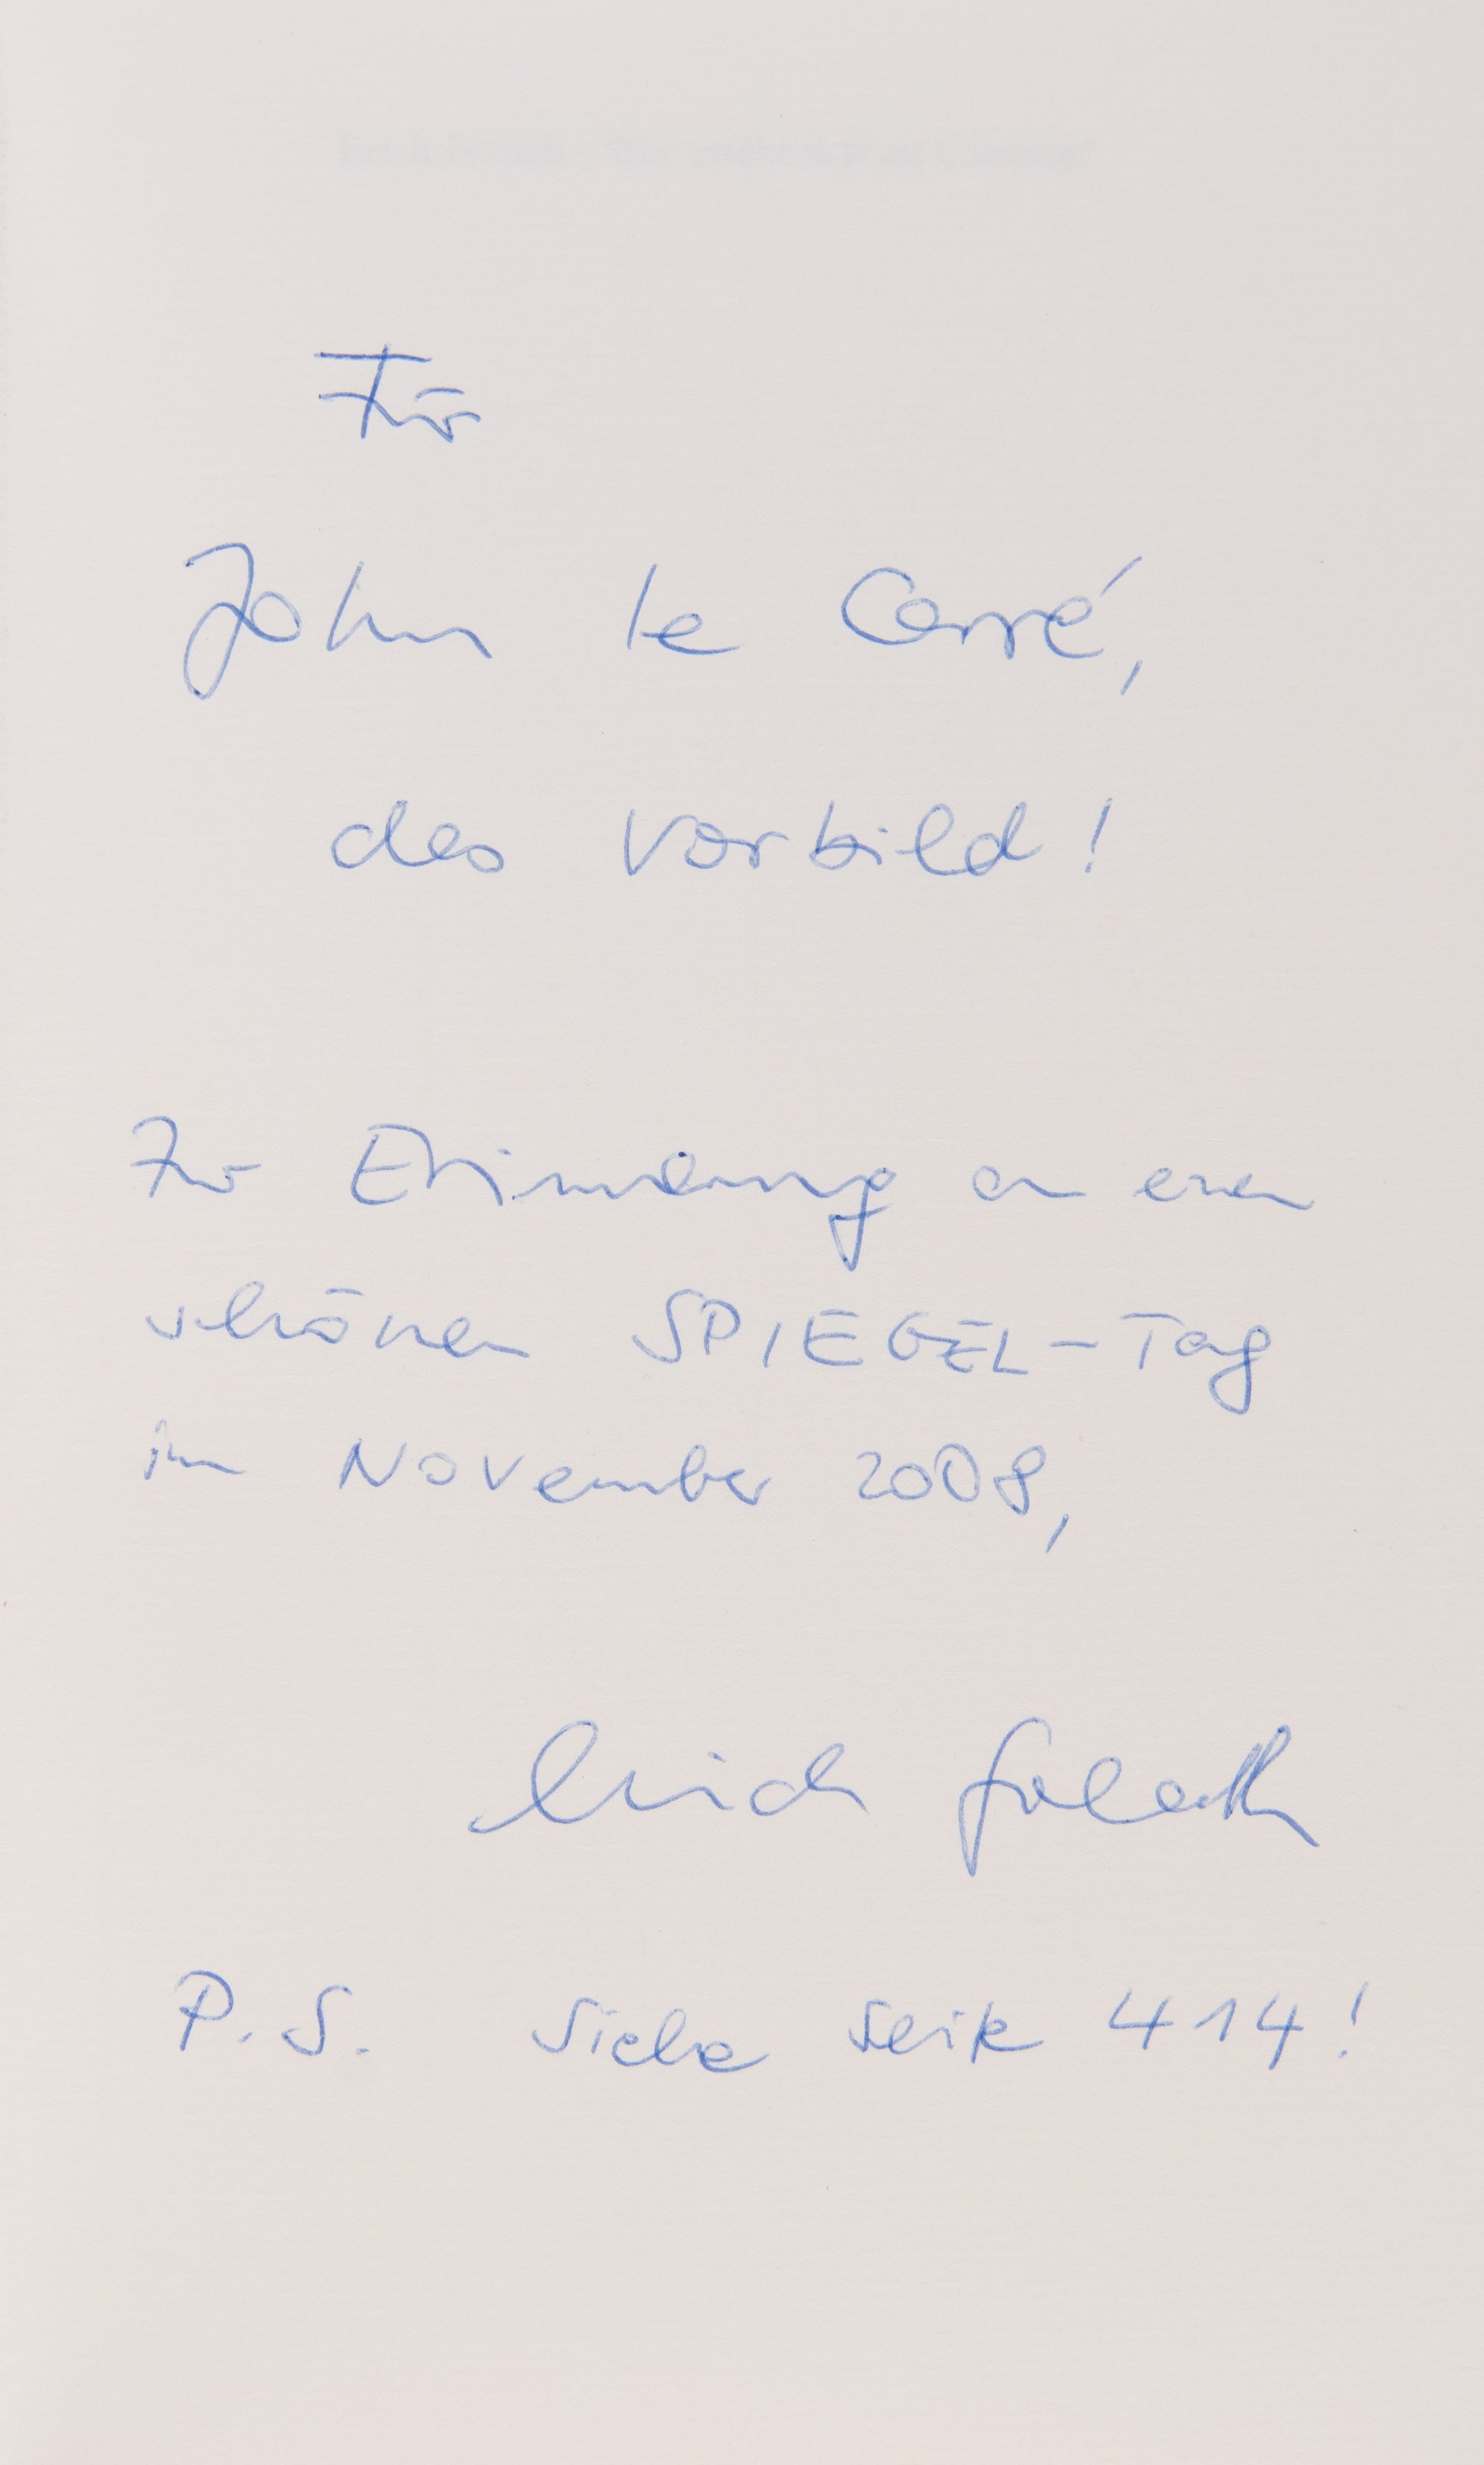 Für
John le Carré,
das Vorbild!
Zur Erinnerung an einen
schönen SPIEGEL-Tag
im November 2008,
Erich Follath
P.S. Siehe Seite 414!